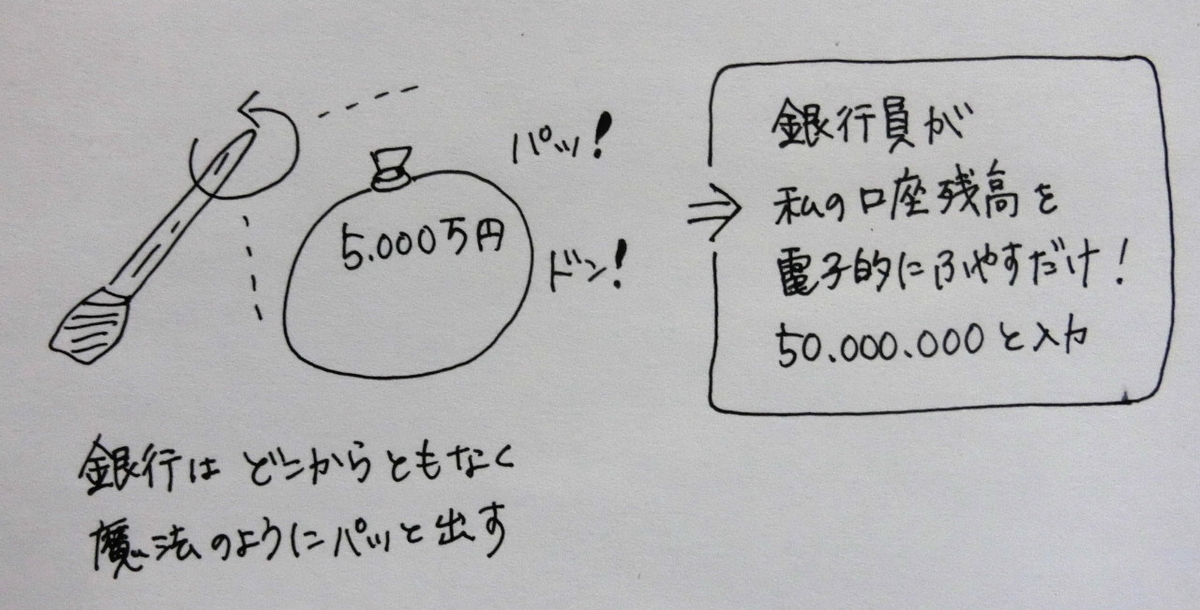 パッ!
5.000万円
ドン!
銀行員が
私の口座残高を
電子的にふやすだけ!
50.000.000と入力
銀行はどこからともなく
魔法のようにパッと出す